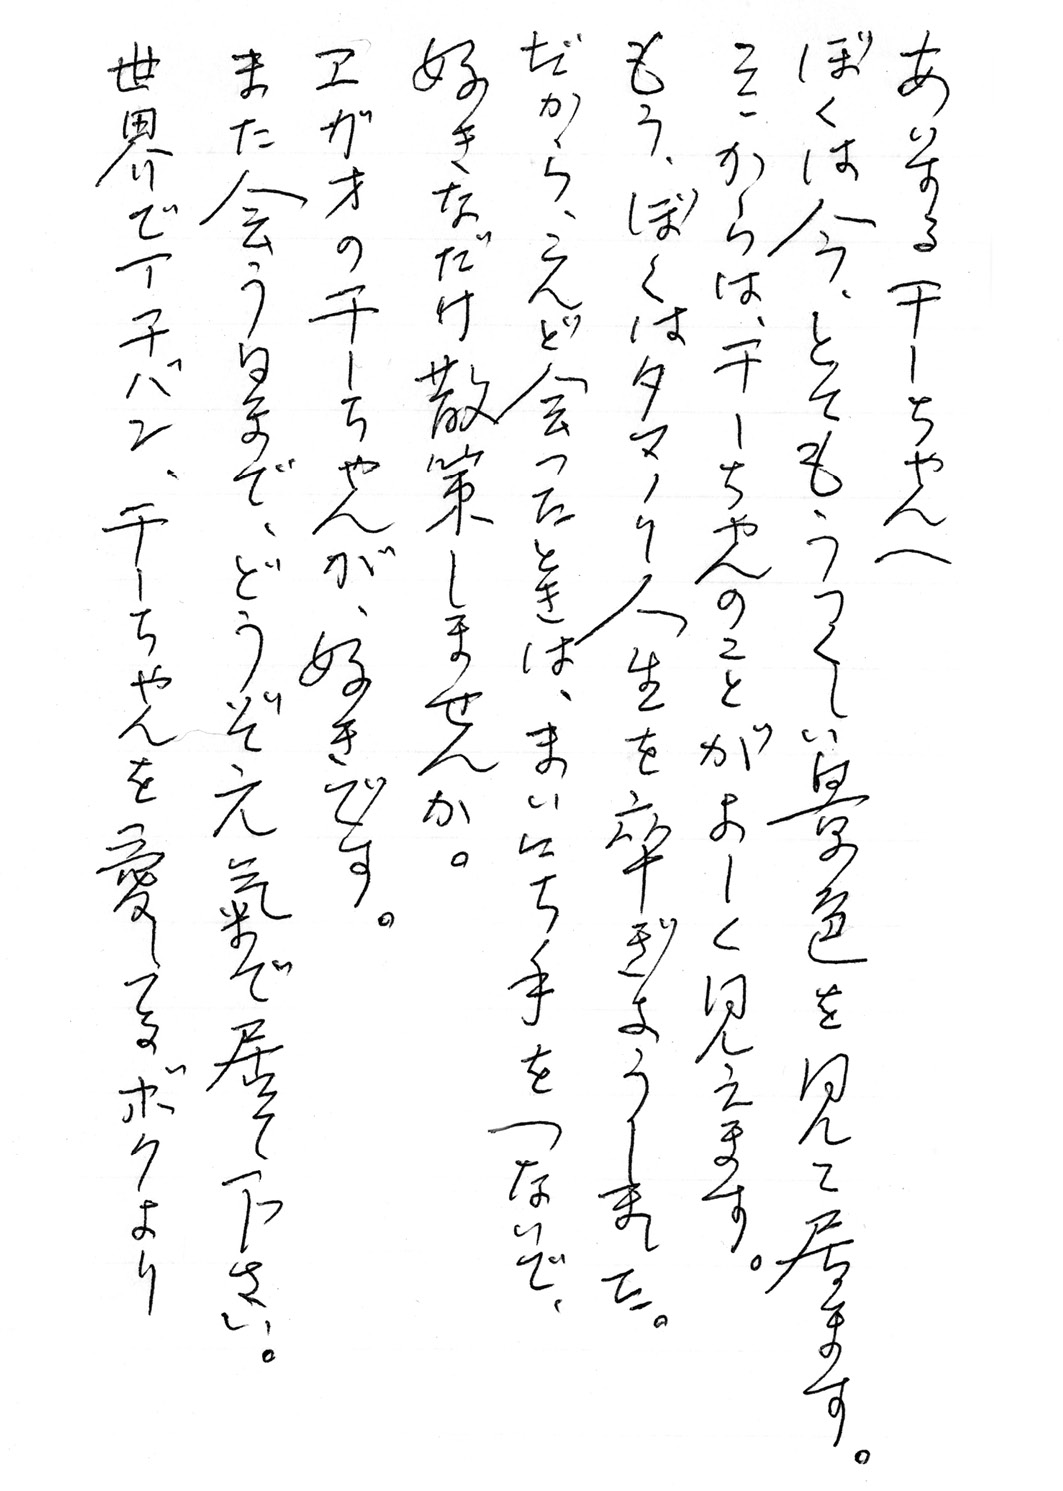 あいする千ーちゃんへ
ぼくは今、とてもうつくしい景色を見て居ます。
そこからは、千ーちゃんのことがよーく見えます。
もう、ぼくはタマノリ人生を卒ぎょうしました。
だから、こんど会ったときは、まいにち手をつないで、
好きなだけ散策しませんか。
エガオの千ーちゃんが、好きです。
また会う日まで、どうぞ元氣で居て下さい。
世界で一チバン、千ーちゃんを愛してるボクより